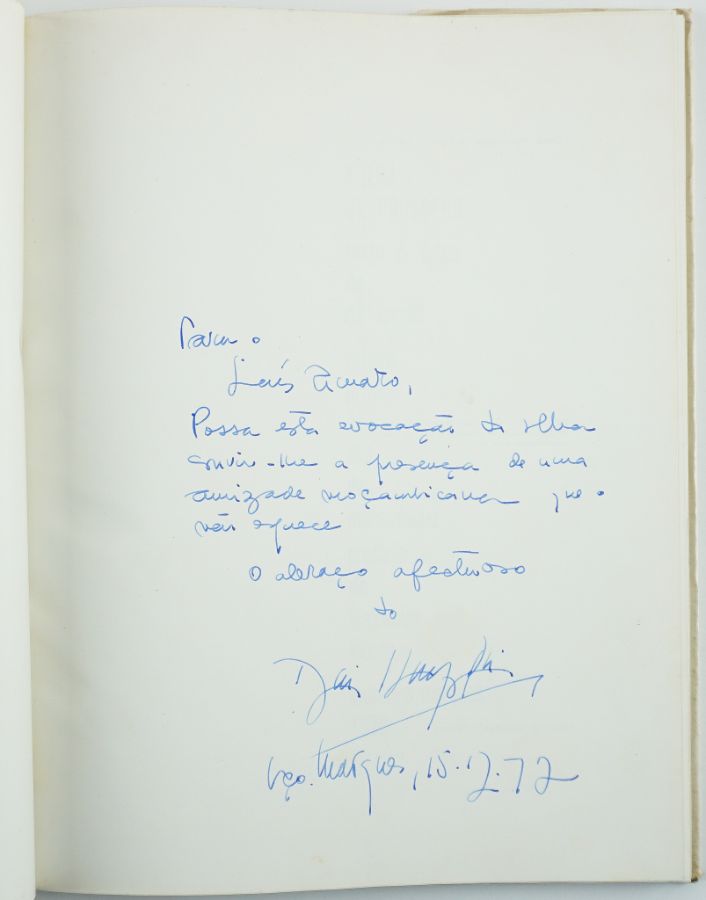 Para o
Luís Amaro,
Possa esta evocação da ilha
servir-lhe a presença de uma
amizade moçambicana que o
não esquece
O abraço afectuoso
do
Lço. Marques, 15.12.72